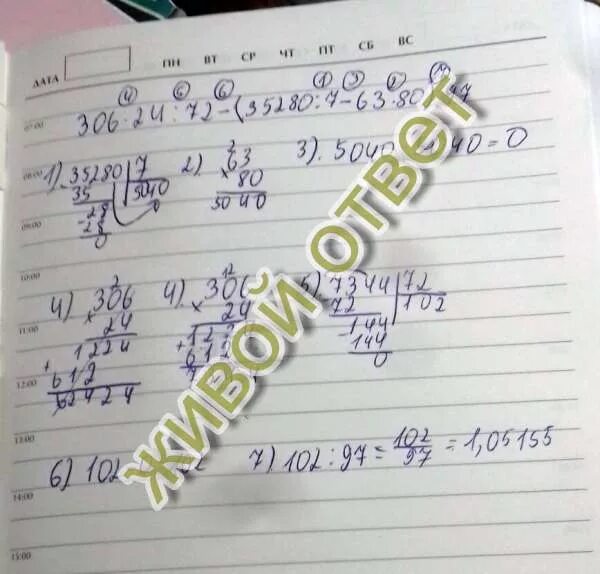 ДАТА ПН ВТ СР ЧТ ПТ СБ ВС
4 6 6 1 3
07:00
306 · 24 : 72 - (35280 : 7 - 63 · 80) 97
08:00
1) 35280 7 2) 63 3) 5040 40 = 0
35 5040 × 80
- 28 5040
28
09:00
0
10:00
4) 306 4) 306 5) 7344 72
× 24 × 24 72 102
11:00
1224 - 144
+ 612 + 144
12:00
62424 0
13:00
6) 102 7) 102 : 97 = 102/97 = 1,05155
14:00
15:00
ЖИВОЙ ОТВЕТ